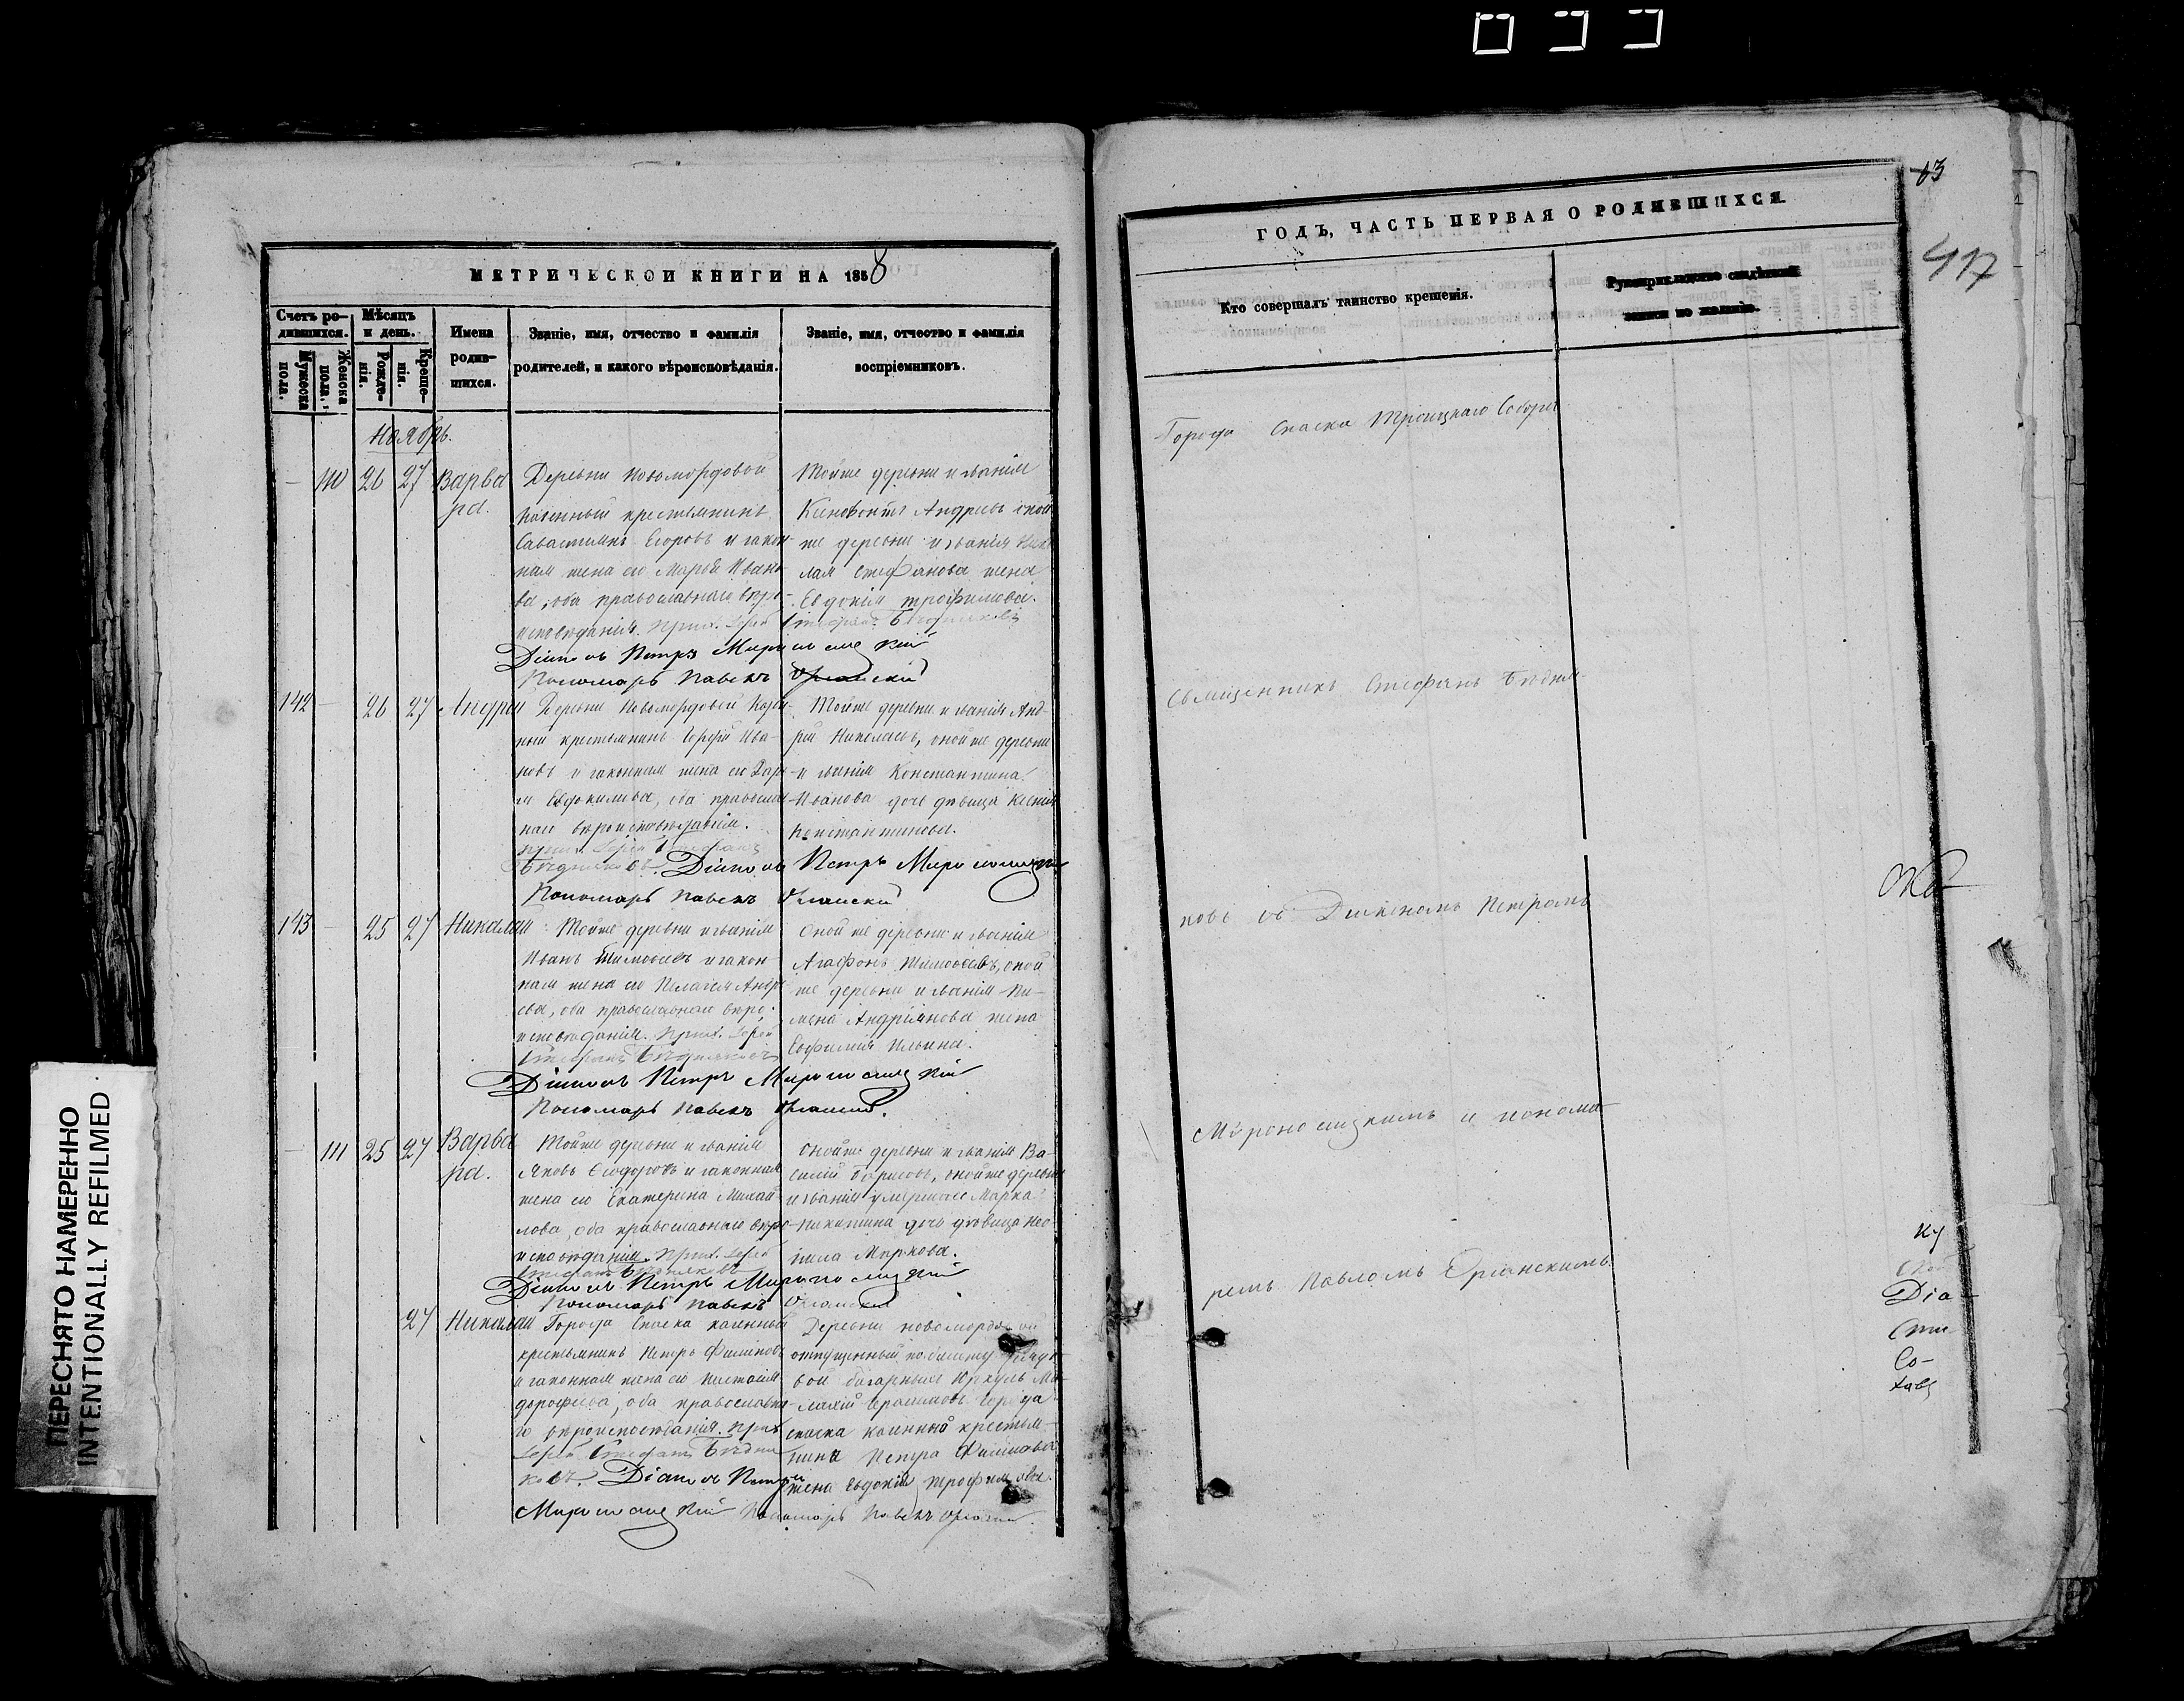 МЕТРИЧЕСКОЙ КНИГИ НА 1858
Счетъ ро-
дившихся.
Мужеска
пола.
Женска
пола.
Мѣсяцъ
и день.
Рожде-
нія.
Креще-
нія.
Имена
родив-
шихся.
Званіе, имя, отчество и фамилія
родителей, и какого вѣроисповѣданія.
Званіе, имя, отчество и фамилія
воспріемниковъ.
Ноябрь.
26 27 Варва
ра.
Деревни Новомордовой
казенный крестьянинъ
Савастіянъ Егоровъ и закон
ная жена его Марья Ивано
ва, оба православнаго вѣро-
исповѣданія. Прих. Іерей Стефанъ Бѣдняковъ
Діаконъ Петръ Мироносицкій
Пономарь Павелъ Орланскій
Тойже деревни и званія
Ксенофонтъ Андреевъ, оной
же деревни и званія Нико
лая Стефанова жена
Евдокія Трофимова.
142 — 26 27 Андрей
Деревни Новомордовой Казен
ный крестьянинъ Сергѣй Ива-
новъ и законная жена его Дарь
я Евдокимова, оба православ
наго вѣроисповѣданія.
Прих. Іерей Стефанъ
Бѣдняковъ. Діаконъ Петръ Мироносицкій
Пономарь Павелъ Орланскій
Тойже деревни и званія Анд-
рей Николаевъ, онойже деревни
и званія Константина
Иванова дочь дѣвица Ксенія
Константинова.
143 — 25 27 Николай
Тойже деревни и званія
Иванъ Тимофеевъ и закон-
ная жена его Пелагея Андре
ева, оба православнаго вѣро-
исповѣданія. Прих. Іерей
Стефанъ Бѣдняковъ
Діаконъ Петръ Мироносицкій
Пономарь Павелъ Орланскій.
Оной же деревни и званія
Агафонъ Тимофеевъ, оной
же деревни и званія Пи-
мена Андріянова жена
Евфимія Ильина.
25 27 Варва
ра.
Тойже деревни и званія
Яковъ Ѳеодоровъ и законная
жена его Екатерина Михай
лова, оба православнаго вѣро-
исповѣданія. Прих. Іерей
Стефанъ Бѣдняковъ
Діаконъ Петръ Мироносицкій
Пономарь Павелъ Орланскій
Онойже деревни и званія Ва-
силій Борисовъ, онойже деревни
и званія умершаго Марка
Никитина дочь дѣвица Нео-
нила Маркова.
27 Николай
Города Спаска казенный
крестьянинъ Петръ Филиповъ
и законная жена его Настасія
Дорофеева, оба православна-
го вѣроисповѣданія. Прих.
Іерей Стефанъ Бѣдня
ковъ. Діаконъ Петръ
Мироносицкій Пономарь Павелъ Орланскій
Деревни Новомордовой
отпущенный по билету
Города
Спаска казенной крестья-
нина Петра Филипова
жена Евдокія Трофимова.
ГОДЪ, ЧАСТЬ ПЕРВАЯ О РОДИВШИХСЯ.
Кто совершалъ таинство крещенія.
Рукоприкладство свидѣтелей
записи по желанію.
417
Города Спаска Троицкаго Собора
Священникъ Стефанъ Бѣдня-
ковъ съ Діакономъ Петромъ
Мѵроносицкимъ и понома-
ремъ Павломъ Орланскимъ.
Ку
Діа
Co-
ПЕРЕСНЯТО НАМЕРЕННО
INTENTIONALLY REFILMED